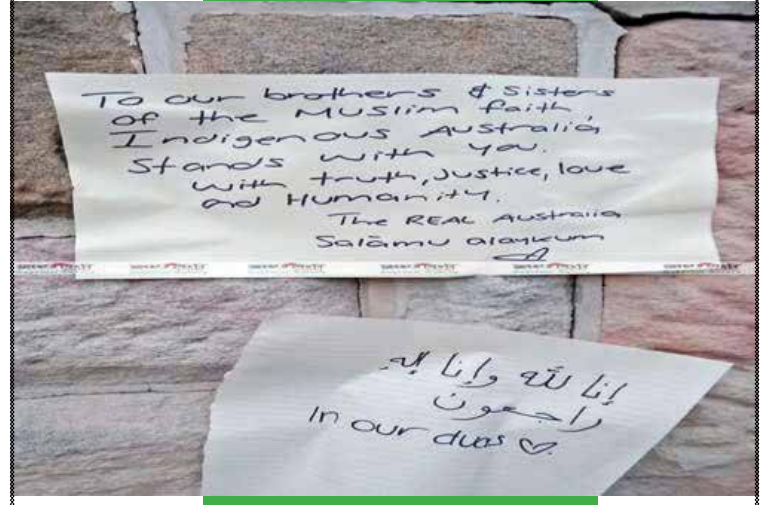 To our brothers & Sisters
of the Muslim faith,
Indigenous Australia,
Stands with you.
with truth, Justice, love
and Humanity.
The REAL Australia
Salāmu alaykum
إنا لله وإنا إليه
راجعون
In our duas ♡